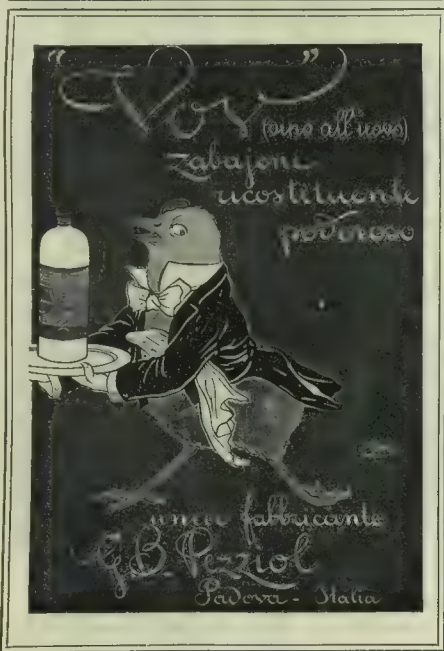 "Vov"
(vino all'uovo)
zabajone
ricostituente
poderoso
unico fabbricante
G B Pezziol
Padova - Italia